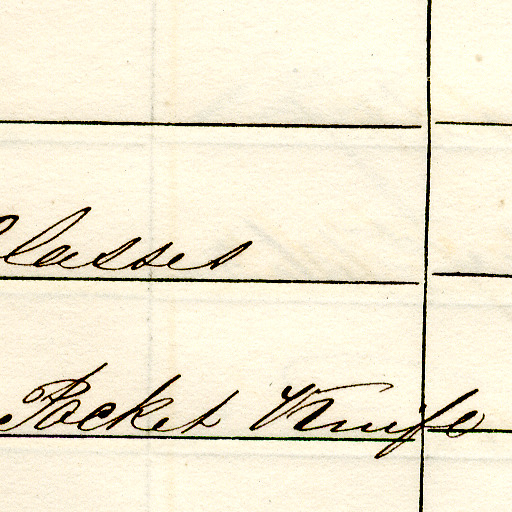 Classes
Pocket Knife